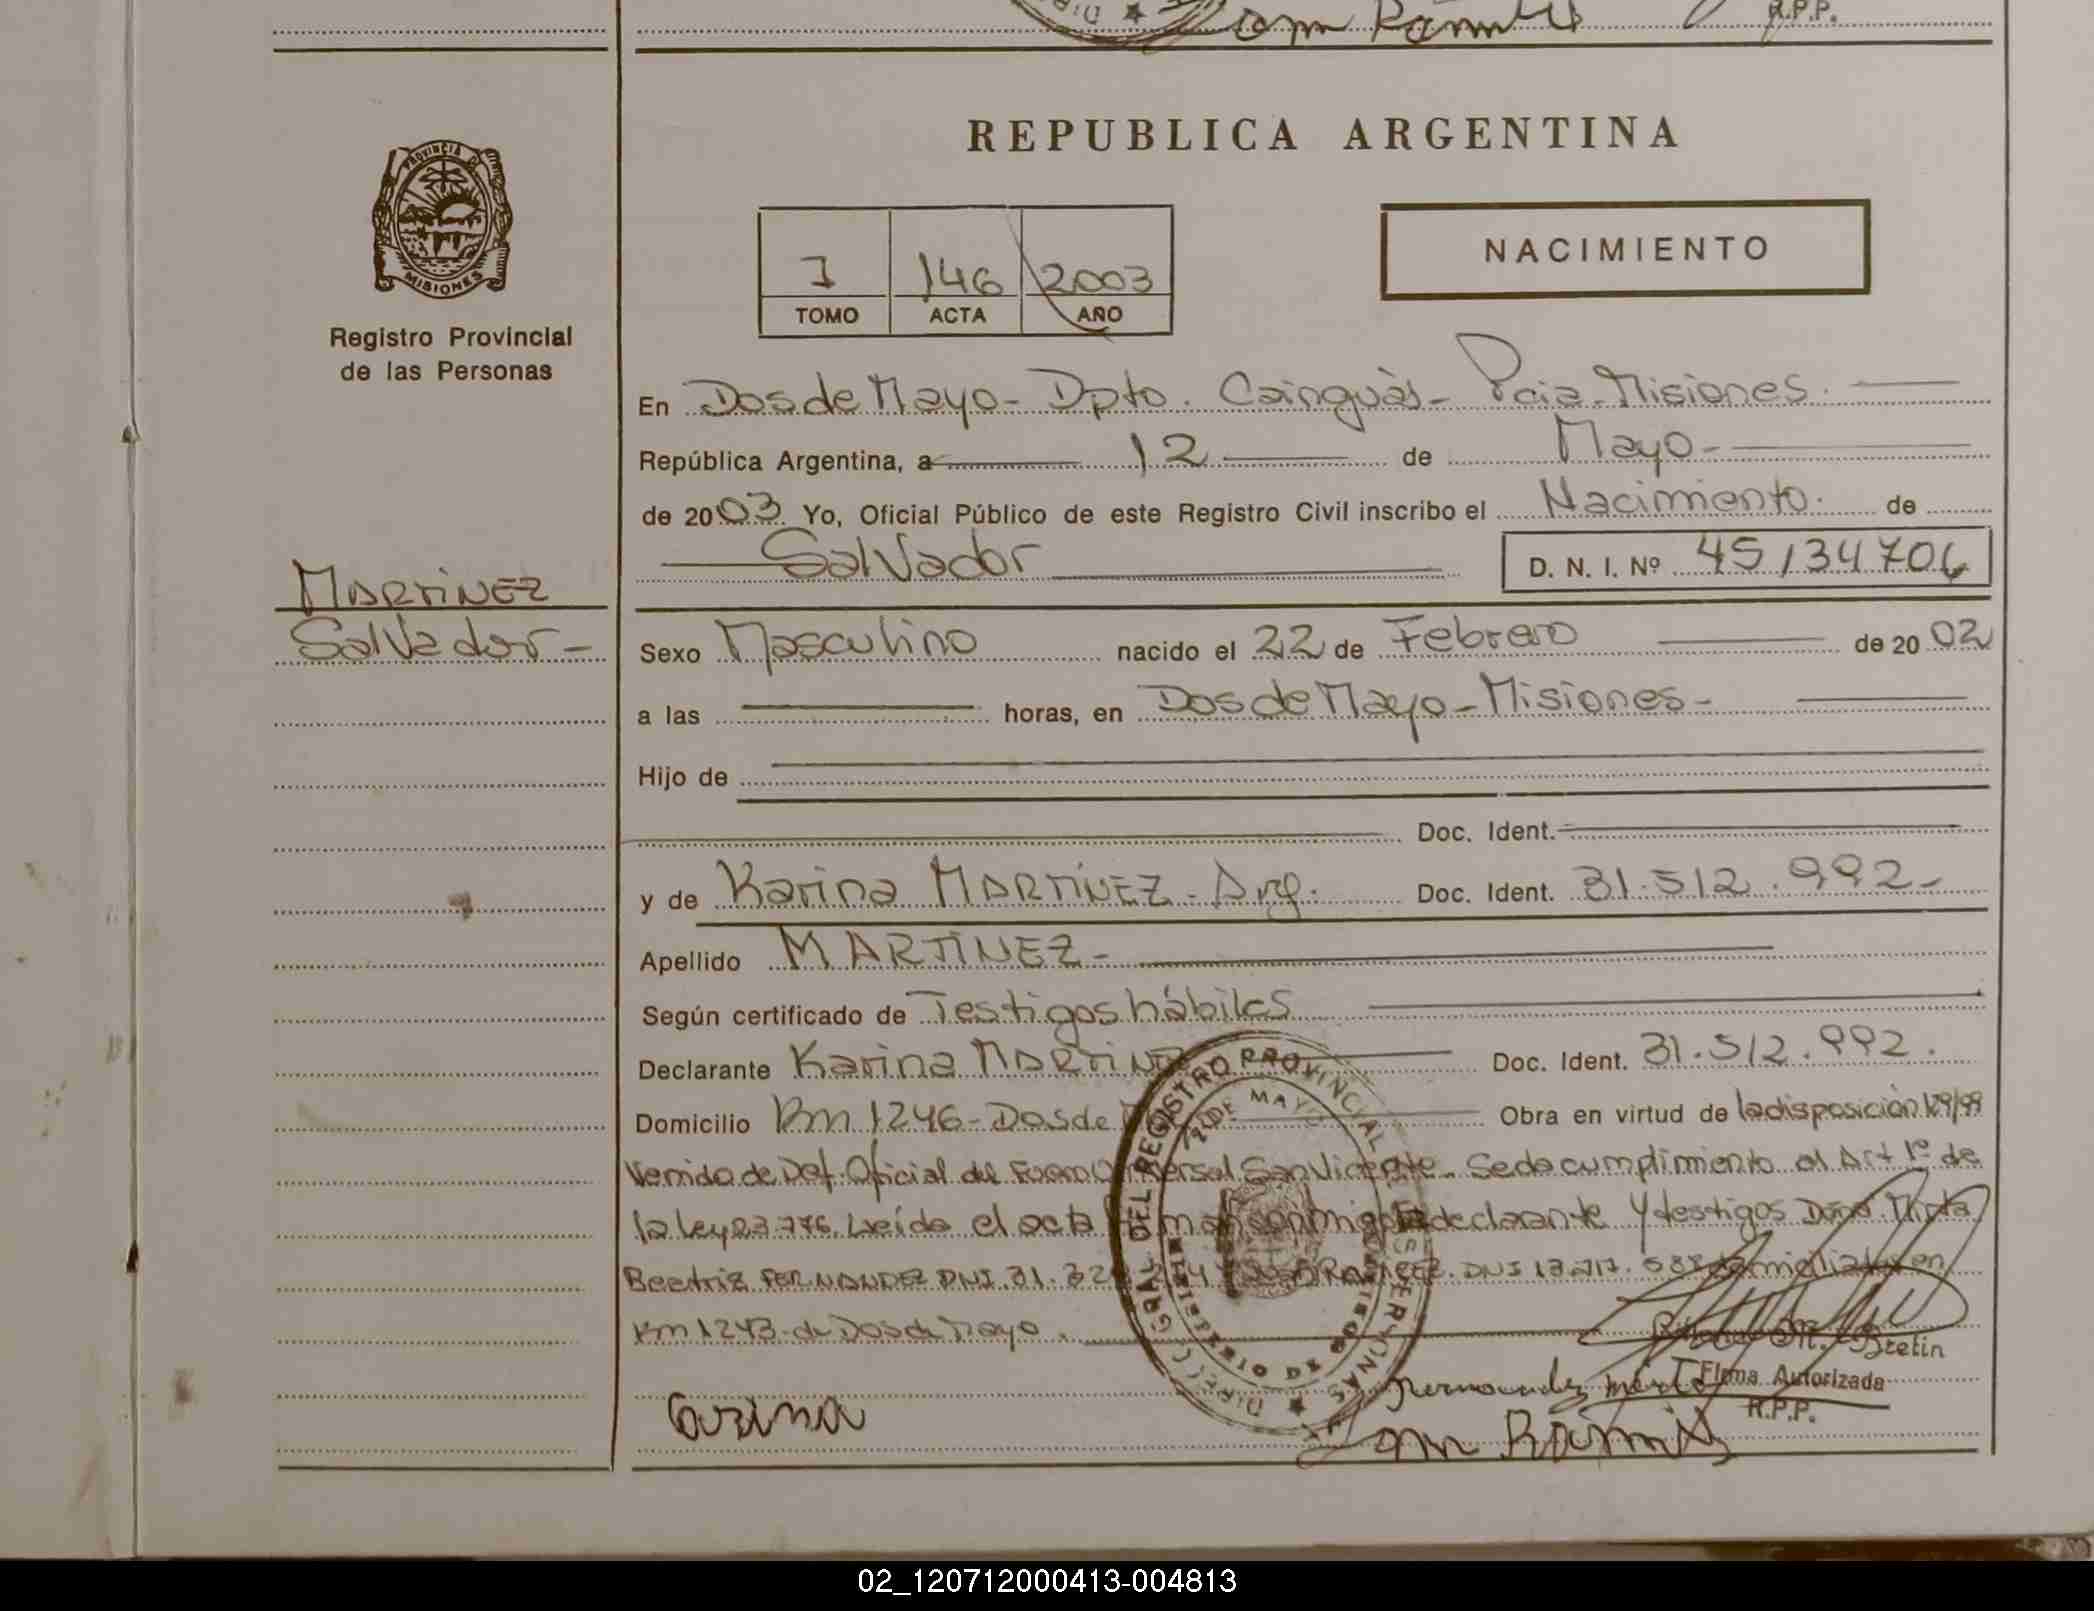 R.P.P.
PROVINCIA D
MISIONES
Registro Provincial
de las Personas
MARTINEZ
Salvador -
REPUBLICA ARGENTINA
I 146 2003
TOMO ACTA AÑO
NACIMIENTO
En Dos de Mayo - Dpto. Cainguás - Pcia. Misiones.
República Argentina, a 12 de Mayo -
de 2003 Yo, Oficial Público de este Registro Civil inscribo el Nacimiento. de
Salvador D. N. I. Nº 45134706
Sexo Masculino nacido el 22 de Febrero de 2002
a las horas, en Dos de Mayo - Misiones -
Hijo de
Doc. Ident.
y de Karina MARTINEZ - Arg. Doc. Ident. 31.512.992 -
Apellido MARTINEZ -
Según certificado de Testigos hábiles
Declarante Karina MARTINEZ Doc. Ident. 31.512.992.
Domicilio Km 1246 - Dos de Obra en virtud de la disposición 129/99
Venido de Def. Oficial del Foro Universal San Vicente - Se da cumplimiento al Art 1º de
la Ley 23.776. Leída el acta conmigo declarante y testigos Doña Mirta
Beatriz FERNANDEZ DNI 31.32 DNI 13.717.588 domiciliados en
Km 1243 - de Dos de Mayo.
DIREC. GRAL. DEL REGISTRO PROVINCIAL DE LAS PERSONAS
2 DE MAYO
Bretin
Firma Autorizada
R.P.P.
Karina
Fernandez Mirta
Ramirez
02_120712000413-004813